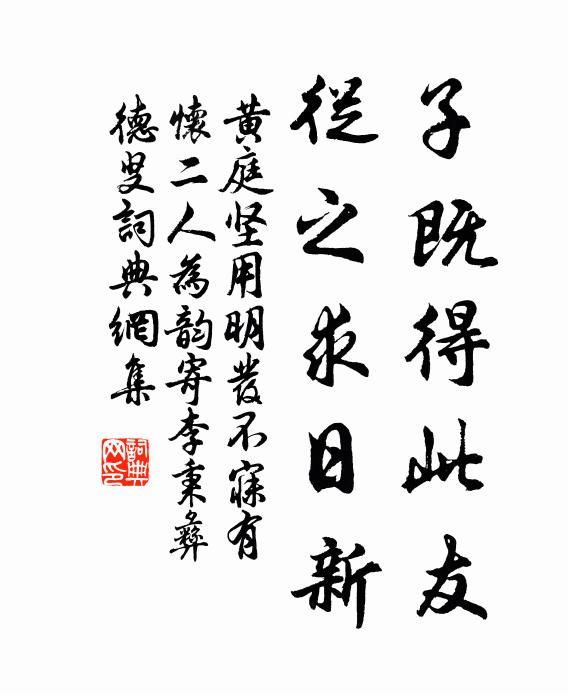 子既得此友
從之求日新
黄庭坚用明發不寐有
懷二人為韵寄李秉彝
德叟詞典網集
詞典
网印